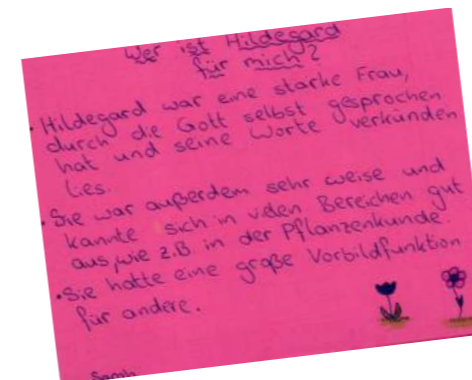 Wer ist Hildegard
für mich?
• Hildegard war eine starke Frau,
durch die Gott selbst gesprochen
hat und seine Worte verkünden
lies.
• Sie war außerdem sehr weise und
kannte sich in vielen Bereichen gut
aus, wie z.B in der Pflanzenkunde.
• Sie hatte eine große Vorbildfunktion
für andere.
Sarah